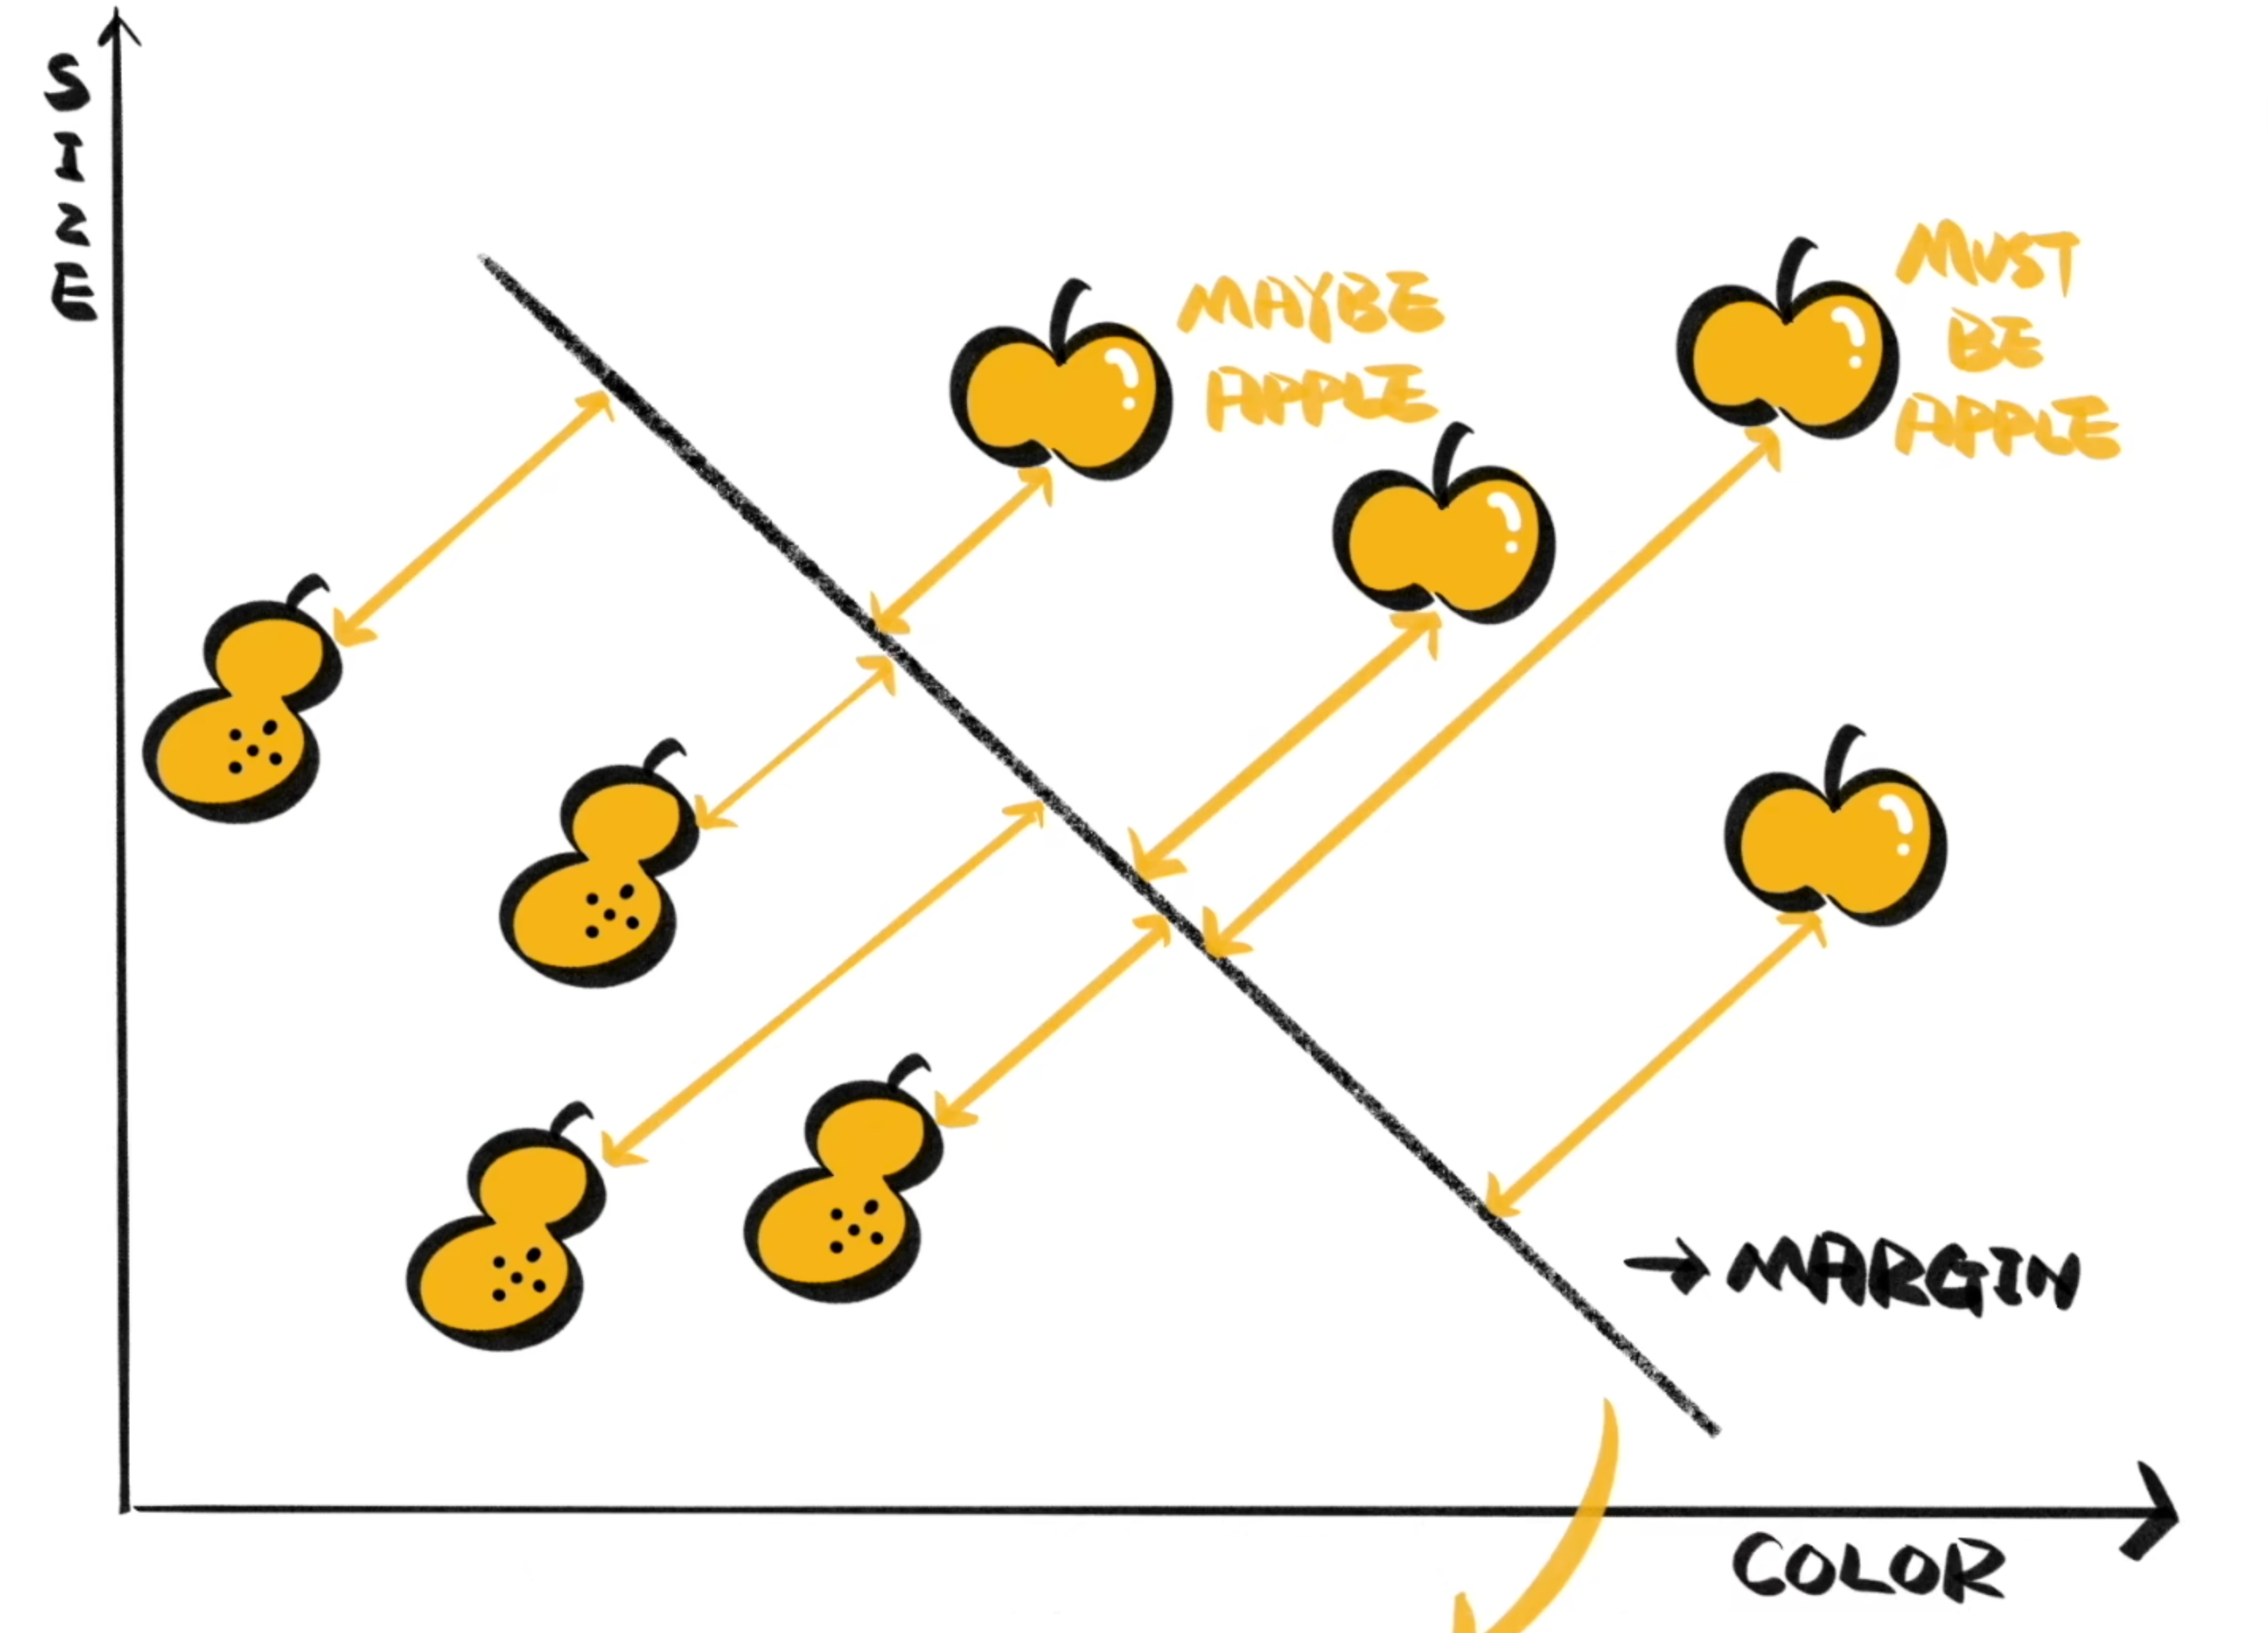 SIZE
MAYBE
APPLE
MUST
BE
APPLE
→ MARGIN
COLOR